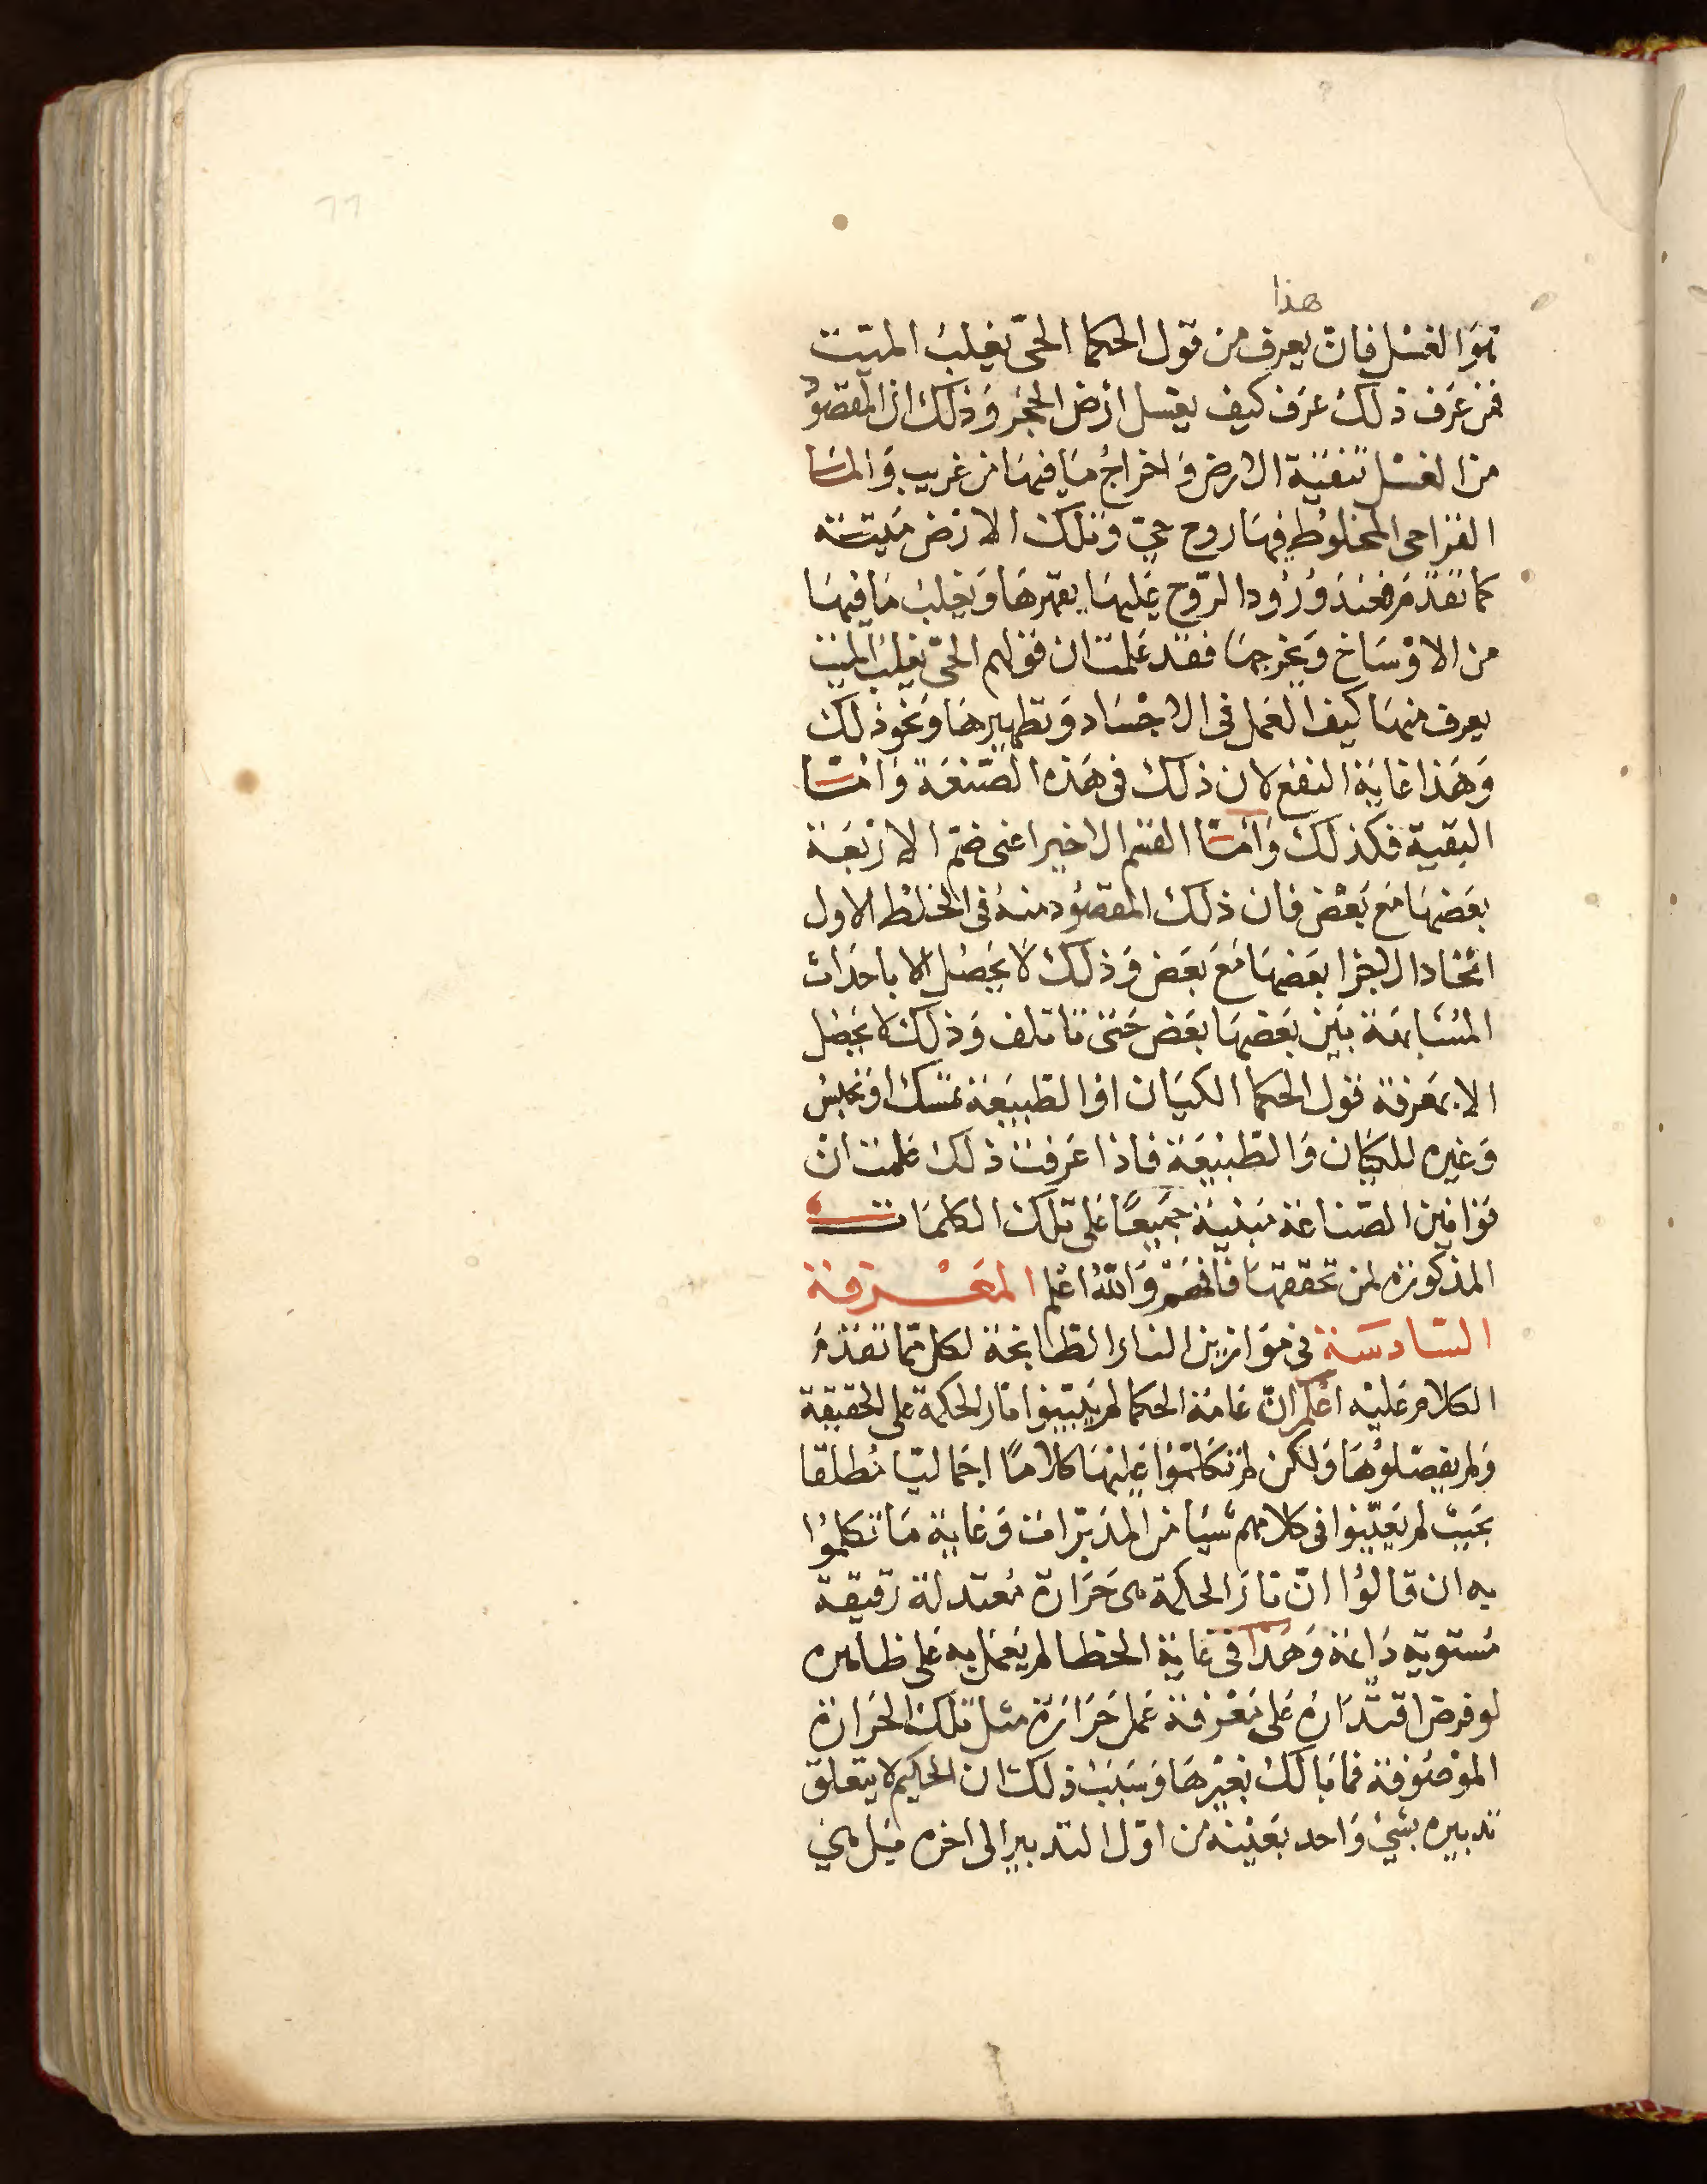 هذا
هوَ الغسْل فان يعرف من قول الحكما الحىّ يغلبُ الميّت
فمن عَرَف ذلك عَرَف كيف يغسل ارض الحجَر وَذلك ان المقصوُد
من الغسْل تنقيَة الارض وَاخراجُ مَا فيهَا من غريب وَالمَا
القراحى المخلوُط فيهَا روح حىّ وَتلك الارض مَيتة
كما تقدّمَ فعندَ وُرُود الرّوح عَليهَا يقهرهَا وَيغلبُ مَا فيهَا
من الاوْسَاخ وَيخرجهَا فقد عَلمت ان قولهم الحىّ يغلبُ الميت
يعرف منهَا كيف العَمل فى الاجْسَاد وَتطهيرهَا وَنحو ذلك
وَهَذا غايَة النفع لان ذلك فى هَذه الصّنعَة وَامّا
البَقية فكذلك وَامّا القسم الاخير اعنى ضمّ الارْبعَة
بعَضهَا مَع بَعْض فان ذلك المقصوُد منهُ فى الخلط الاول
اتحّاد الاجزا بعَضهَا مَعَ بعَض وَذلك لا يحَصُل الا باحدَاث
المُشَابهَة بَين بعَضهَا بعَض حَتىّ تاتلف وَذلك لا يحصُل
الا بمَعرفة قول الحكما الكيَان او الطبيعَة تمسك او تحبسُ
وَغيره للكيَان وَالطّبيعَة فاذا عَرفت ذلك عَلمت انْ
قوَانين الصّناعَة مَبنيَة جَميعًا عَلى تلك الكلمَات
المذكورَة لمن تحققهَا فافهَمْ وَاللهُ اعْلم المعَرفة
السّادسَة فى موَازين النار الطّابخة لكل ممّا تقدّمَ
الكلامُ عَليْه اعْلم انّ عَامّة الحكما لم يُبيّنوا نار الحكمة على الحقيقة
وَلم يفصّلوُهَا وَلكن لم تكلّموُا عَليهَا كلامًا اجمَاليًا مُطلقا
بحَيث لم يعَيّنوا فى كلامهم شيَا من المدَبّرات وَغاية مَا تكلموُا
به ان قالوُا انّ نارَ الحكمة هى حَرَارة مُعتدلة رَقيقة
مُستوية دَائمة وَهَذا فى غاية الخطا لم يَعمَل به عَلى ظاهره
لو فرض اقتدَارهُ عَلى مَعْرفة عَمل حَرَارَة مثل تلك الحرَارة
الموْصوُفة فمَا بَالك بغيْرهَا وَسَبَبُ ذلك ان الحكيم لا يتعلق
تدبيره بشىْ وَاحد بعَينه من اوّل التدبير الى اخره مثل هى